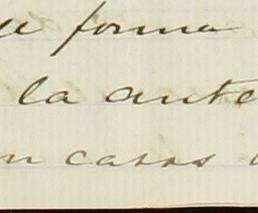 forma
la ante
casos